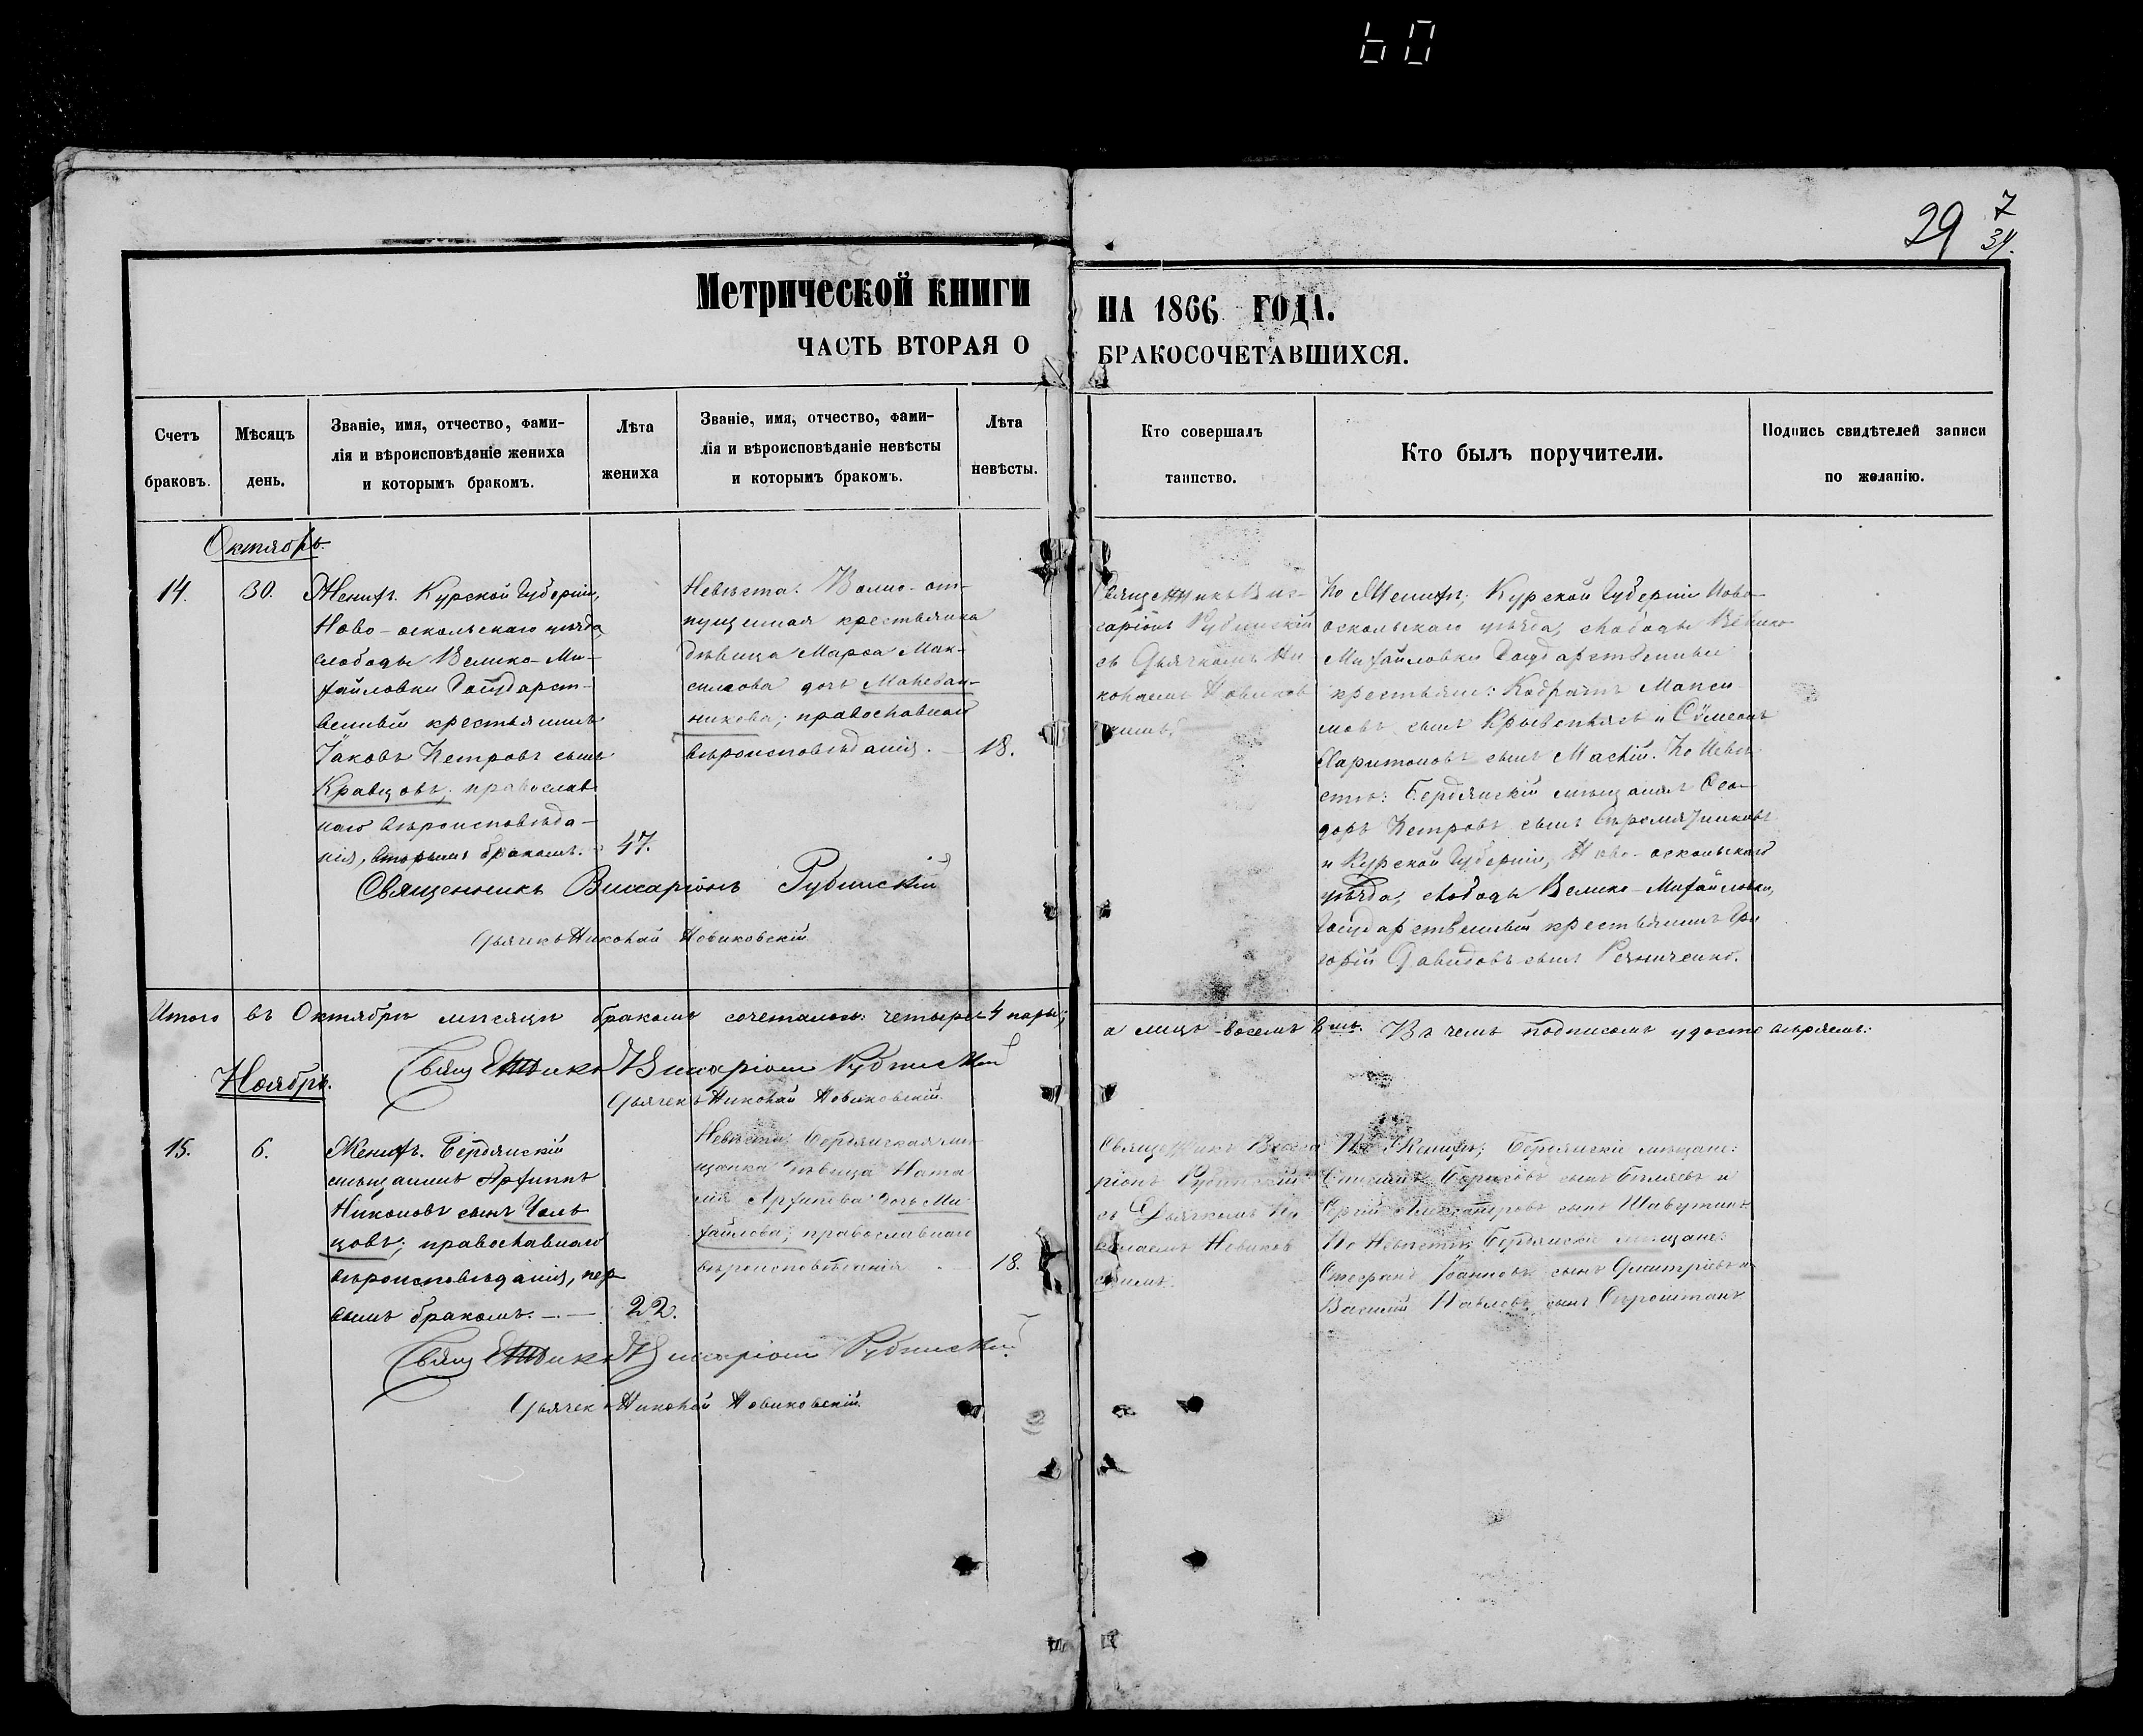 60
29 7
34.
Метрической книги НА 1866 ГОДА.
ЧАСТЬ ВТОРАЯ О БРАКОСОЧЕТАВШИХСЯ.
Счетъ браковъ.
Мѣсяцъ день.
Званіе, имя, отчество, фами-
лія и вѣроисповѣданіе жениха
и которымъ бракомъ.
Лѣта жениха
Званіе, имя, отчество, фами-
лія и вѣроисповѣданіе невѣсты
и которымъ бракомъ.
Лѣта невѣсты.
Кто совершалъ
таинство.
Кто былъ поручители.
Подпись свидѣтелей записи
по желанію.
Октябрь.
14.
30.
Женихъ. Курской Губерніи,
Ново-оскольскаго уѣзда,
слободы Велико-Ми-
хайловки Государст-
венный крестьянинъ
Іаковъ Петровъ сынъ
Кравцовъ; православ
наго вѣроисповѣда-
нія, вторымъ бракомъ.
47.
Невѣста: Волно-от-
пущенная крестьянка
дѣвица Марѳа Мак-
симова дочь
никова; православнаго
вѣроисповѣданія.
18.
Священникъ Вис-
саріонъ Рубинскій
съ Дьячкомъ Ни
колаемъ Новиков
скимъ.
По Женихѣ; Курской Губерніи Ново-
оскольскаго уѣзда, слободы Велико
Михайловки Государственные
крестьяне: Кодратъ Макси
мовъ сынъ и Сѵмеонъ
Харитоновъ сынъ По Невѣ
стѣ: Бердянскій мѣщанинъ Ѳео-
доръ Петровъ сынъ
и Курской Губерніи, Ново-оскольскаго
уѣзда, слободы Велико-Михайловки,
Государственный крестьянинъ Гри
горій Давидовъ сынъ Резниченко.
Священникъ Виссаріонъ Рубинскій
Дьячекъ Николай Новиковскій
Итого въ Октябрѣ мѣсяцѣ бракомъ сочеталось: четыре 4 пары; а лицъ восемь 8мь. Въ чемъ подписомъ удостовѣряемъ:
Священникъ Виссаріонъ Рубинскій
Дьячекъ Николай Новиковскій.
Ноябрь.
15.
6.
Женихъ. Бердянскій
мѣщанинъ Архиппъ
Никоновъ сынъ
цовъ; православнаго
вѣроисповѣданія, пер
вымъ бракомъ.
22.
Невѣста; Бердянская мѣ
щанка дѣвица Ната
лія Архипова дочь Ми
хайлова; православнаго
вѣроисповѣданія
18.
Священникъ Висса
ріонъ Рубинскій
съ Дьячкомъ Ни
колаемъ Новиков
скимъ.
По Женихѣ; Бердянскіе мѣщане:
Борисовъ сынъ Бѣляевъ и
Александровъ сынъ
По Невѣстѣ: Бердянскіе мѣщане:
Стефанъ Іоанновъ сынъ Дмитріевъ и
Василій Павловъ сынъ
Священникъ Виссаріонъ Рубинскій.
Дьячекъ Николай Новиковскій.